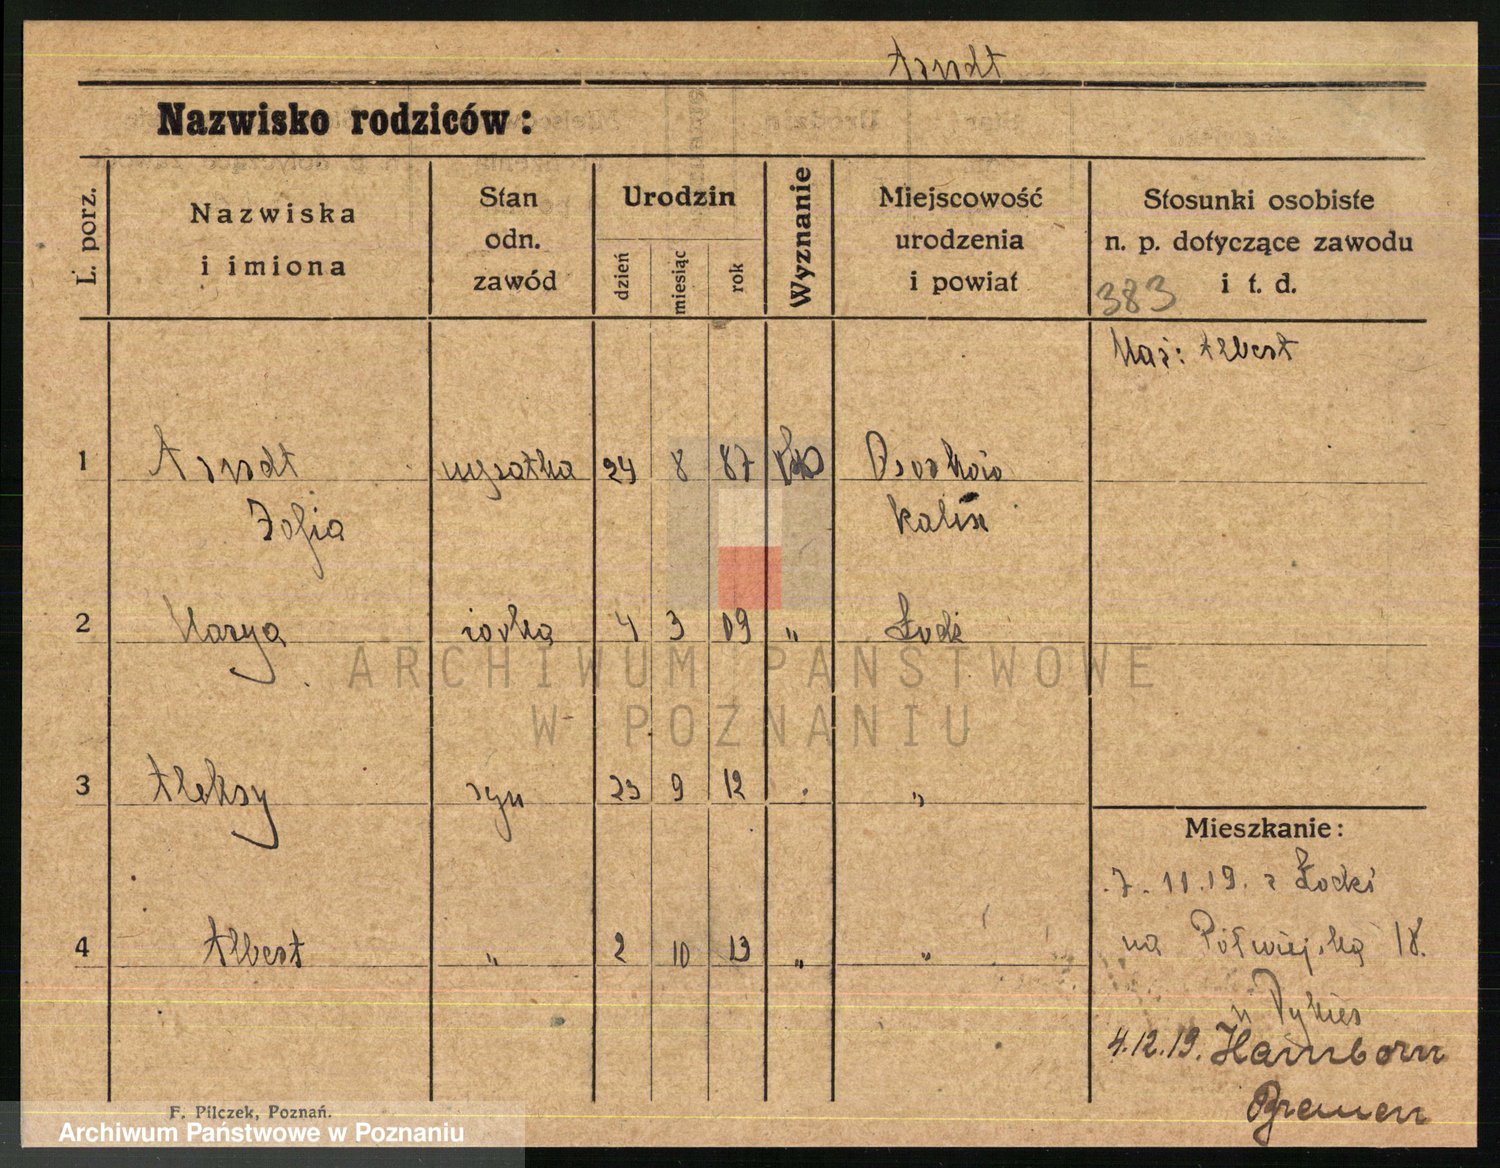 Arndt
Nazwisko rodziców:
L. porz.
Nazwiska
i imiona
Stan
odn.
zawód
Urodzin
dzień
miesiąc
rok
Wyznanie
Miejscowość
urodzenia
i powiat
Stosunki osobiste
n. p. dotyczące zawodu
i t. d.
383
Mąż: Albert
1 Arndt 24 8 87
Zofia Kalisz
2 Marya 4 3 09 „ Łodź
ARCHIWUM PAŃSTWOWE
W POZNANIU
3 Aleksy syn 23 9 12 „
Mieszkanie:
7. 11.19. z Łodzi
4 Albert „ 2 10 13 „ „
na Półwiejską 18.
u
4.12.19. Hamborn
Bremen
F. Pilczek, Poznań.
Archiwum Państwowe w Poznaniu